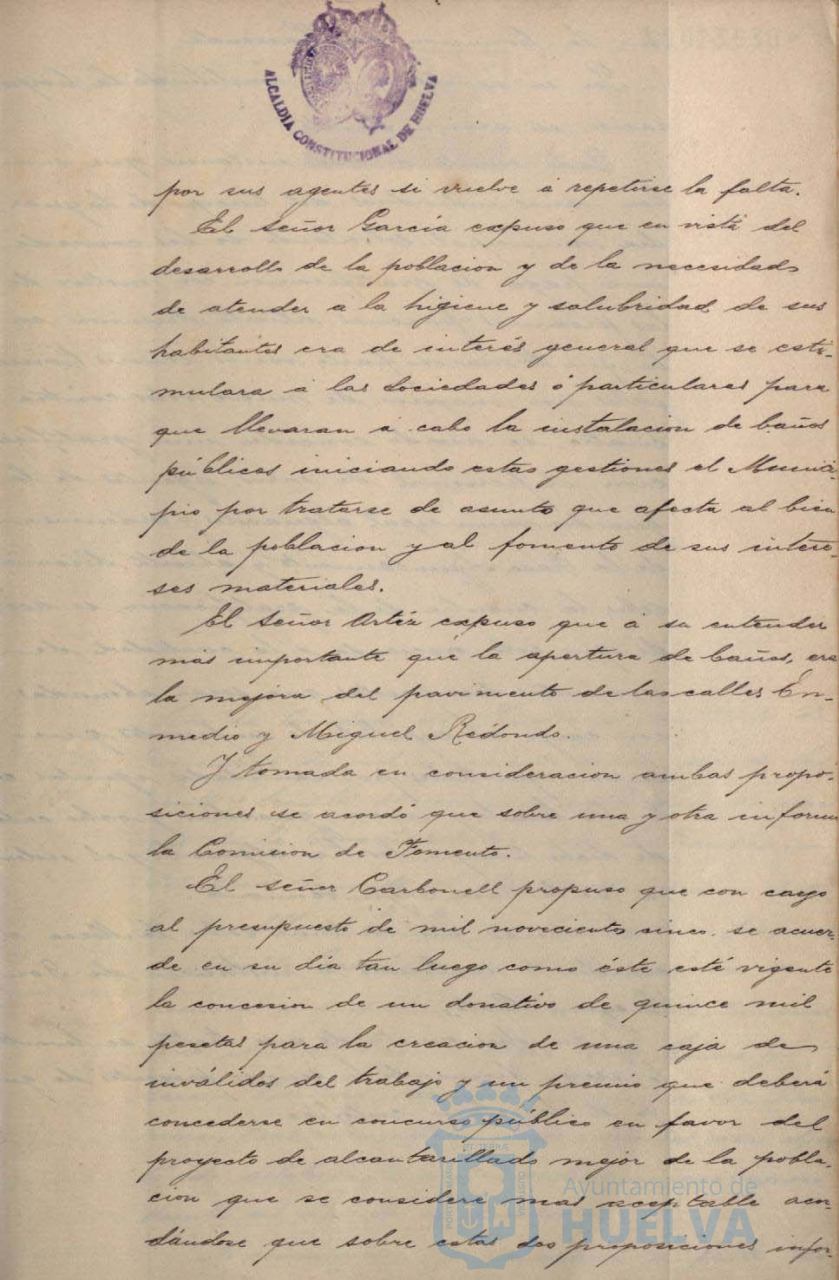 ALCALDIA CONSTITUCIONAL DE HUELVA
por sus agentes si vuelve á repetirse la falta.
El Señor García expuso que en vista del
desarrollo de la poblacion y de la necesidad
de atender á la higiene y salubridad de sus
habitantes era de interés general que se esti-
mulara á las Sociedades ó particulares para
que llevaran á cabo la instalacion de baños
públicos iniciando estas gestiones el Munici-
pio por tratarse de asunto que afecta al bien
de la poblacion y al fomento de sus intere-
ses materiales.
El Señor Ortiz expuso que á su entender
mas importante que la apertura de baños, era
la mejora del pavimento de las calles En-
medio y Miguel Redondo.
Y tomada en consideracion ambas propo-
siciones se acordó que sobre una y otra informe
la Comision de Fomento.
El señor Carbonell propuso que con cargo
al presupuesto de mil novecientos cinco se acuer-
de en su dia tan luego como éste esté vigente
la concesion de un donativo de quince mil
pesetas para la creacion de una caja de
inválidos del trabajo y un premio que deberá
concederse en concurso público en favor del
proyecto de alcantarillado mejor de la pobla-
cion que se considere mas aceptable acor-
dándose que sobre estas dos proposiciones infor-
Ayuntamiento de
HUELVA